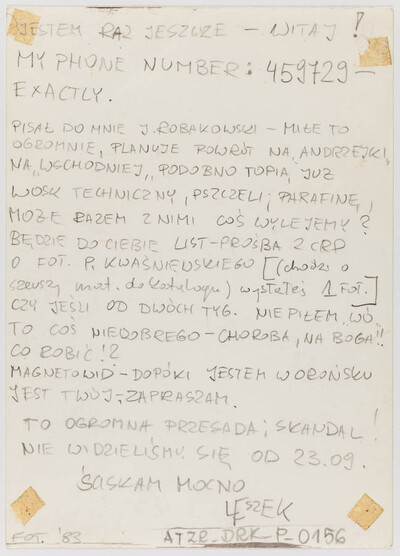 JESTEM RAZ JESZCZE – WITAJ!
MY PHONE NUMBER: 459729 –
EXACTLY.
PISAŁ DO MNIE J. ROBAKOWSKI – MIŁE TO
OGROMNIE, PLANUJE POWRÓT NA ANDRZEJKI,
NA „WSCHODNIEJ„ PODOBNO TOPIĄ JUŻ
WOSK TECHNICZNY, PSZCZELI, PARAFINĘ,
MOŻE RAZEM Z NIMI COŚ WYLEJEMY?
BĘDZIE DO CIEBIE LIST-PROŚBA Z CRP
O FOT. P. KWAŚNIEWSKIEGO [(chodzi o
szerszy mat. do katalogu) wysłałeś 1 FOT.]
CZY JEŚLI OD DWÓCH TYG. NIE PIŁEM „WÓ„
TO COŚ NIEDOBREGO – CHOROBA, NA BOGA!!
CO ROBIĆ!?
MAGNETOWID – DOPÓKI JESTEM W OROŃSKU
JEST TWÓJ, – ZAPRASZAM.
TO OGROMNA PRZESADA; SKANDAL!
NIE WIDZIELIŚMY SIĘ OD 23.09.
ŚCISKAM MOCNO
LESZEK
FOT. '83
ATZR_DRK_P_0156